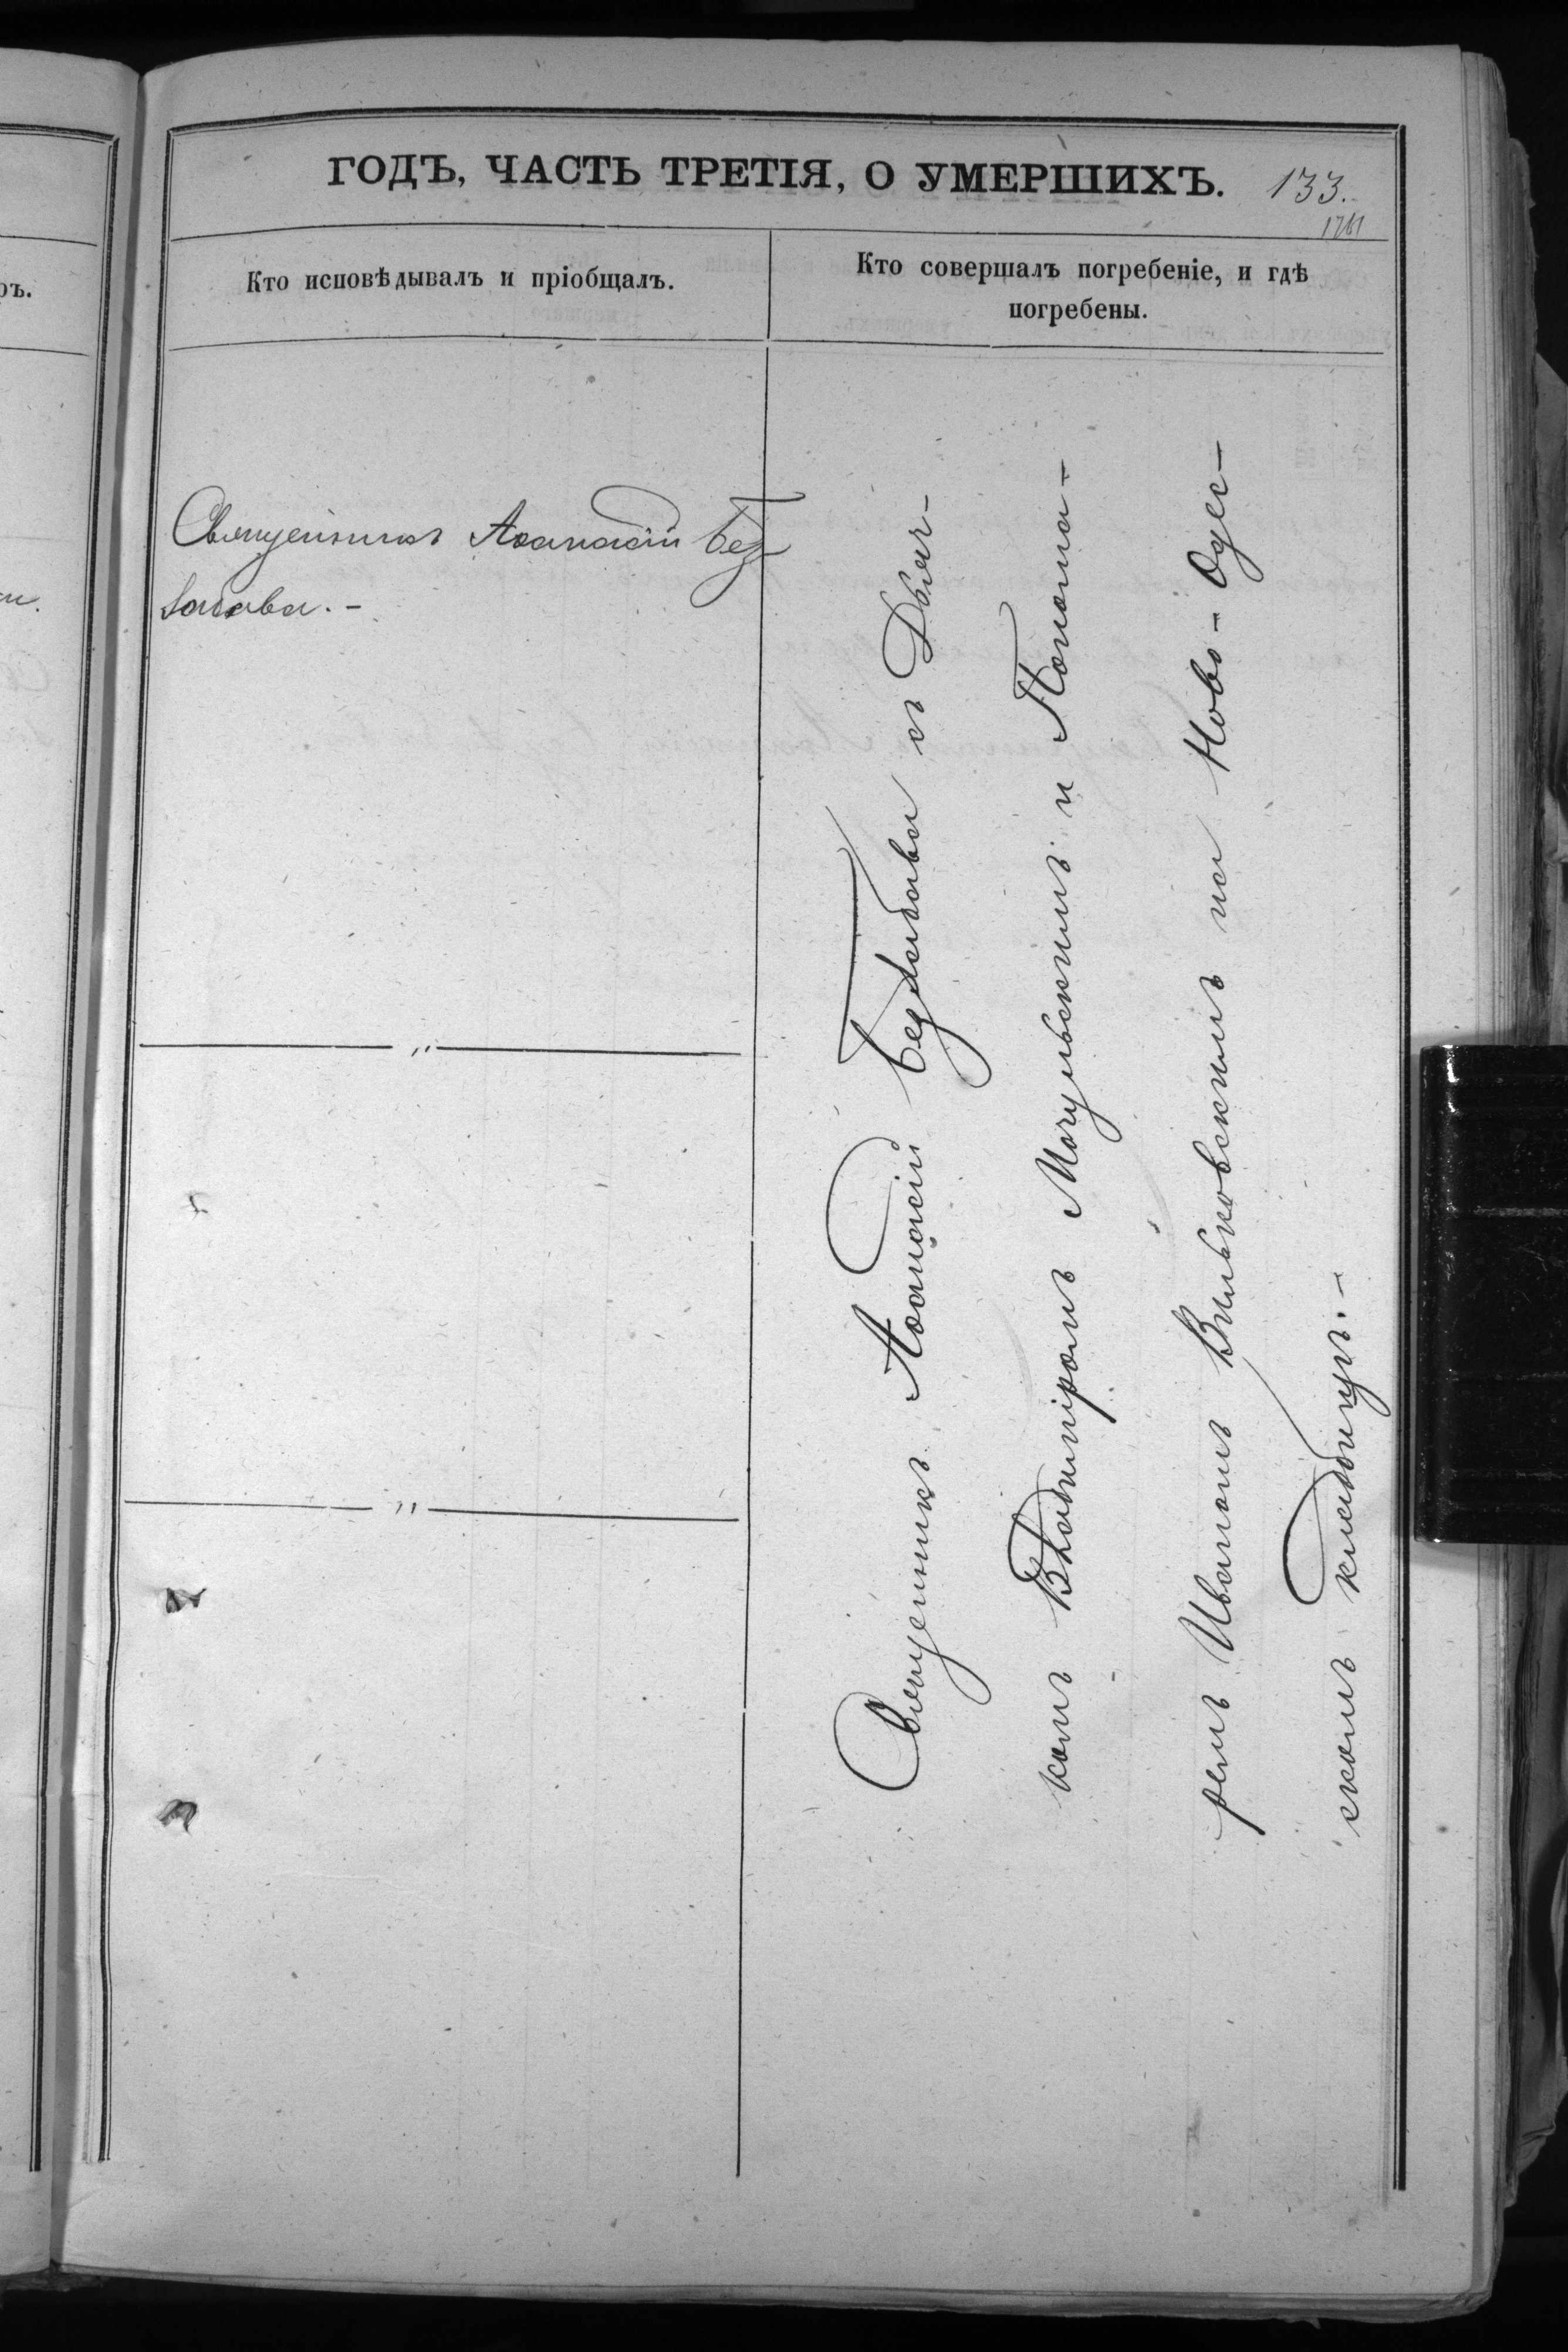 ГОДЪ, ЧАСТЬ ТРЕТІЯ, О УМЕРШИХЪ. 133.
Кто исповѣдывалъ и пріобщалъ.
Кто совершалъ погребеніе, и гдѣ
погребены.
Священникъ Аѳанасій Без-
забава.-
Священникъ Аѳанасій Беззабава съ Дьяч-
комъ Владиміромъ Мочульскимъ и Понома-
ремъ Иваномъ Вильковскимъ на Ново-Одес-
скомъ кладбищѣ.-